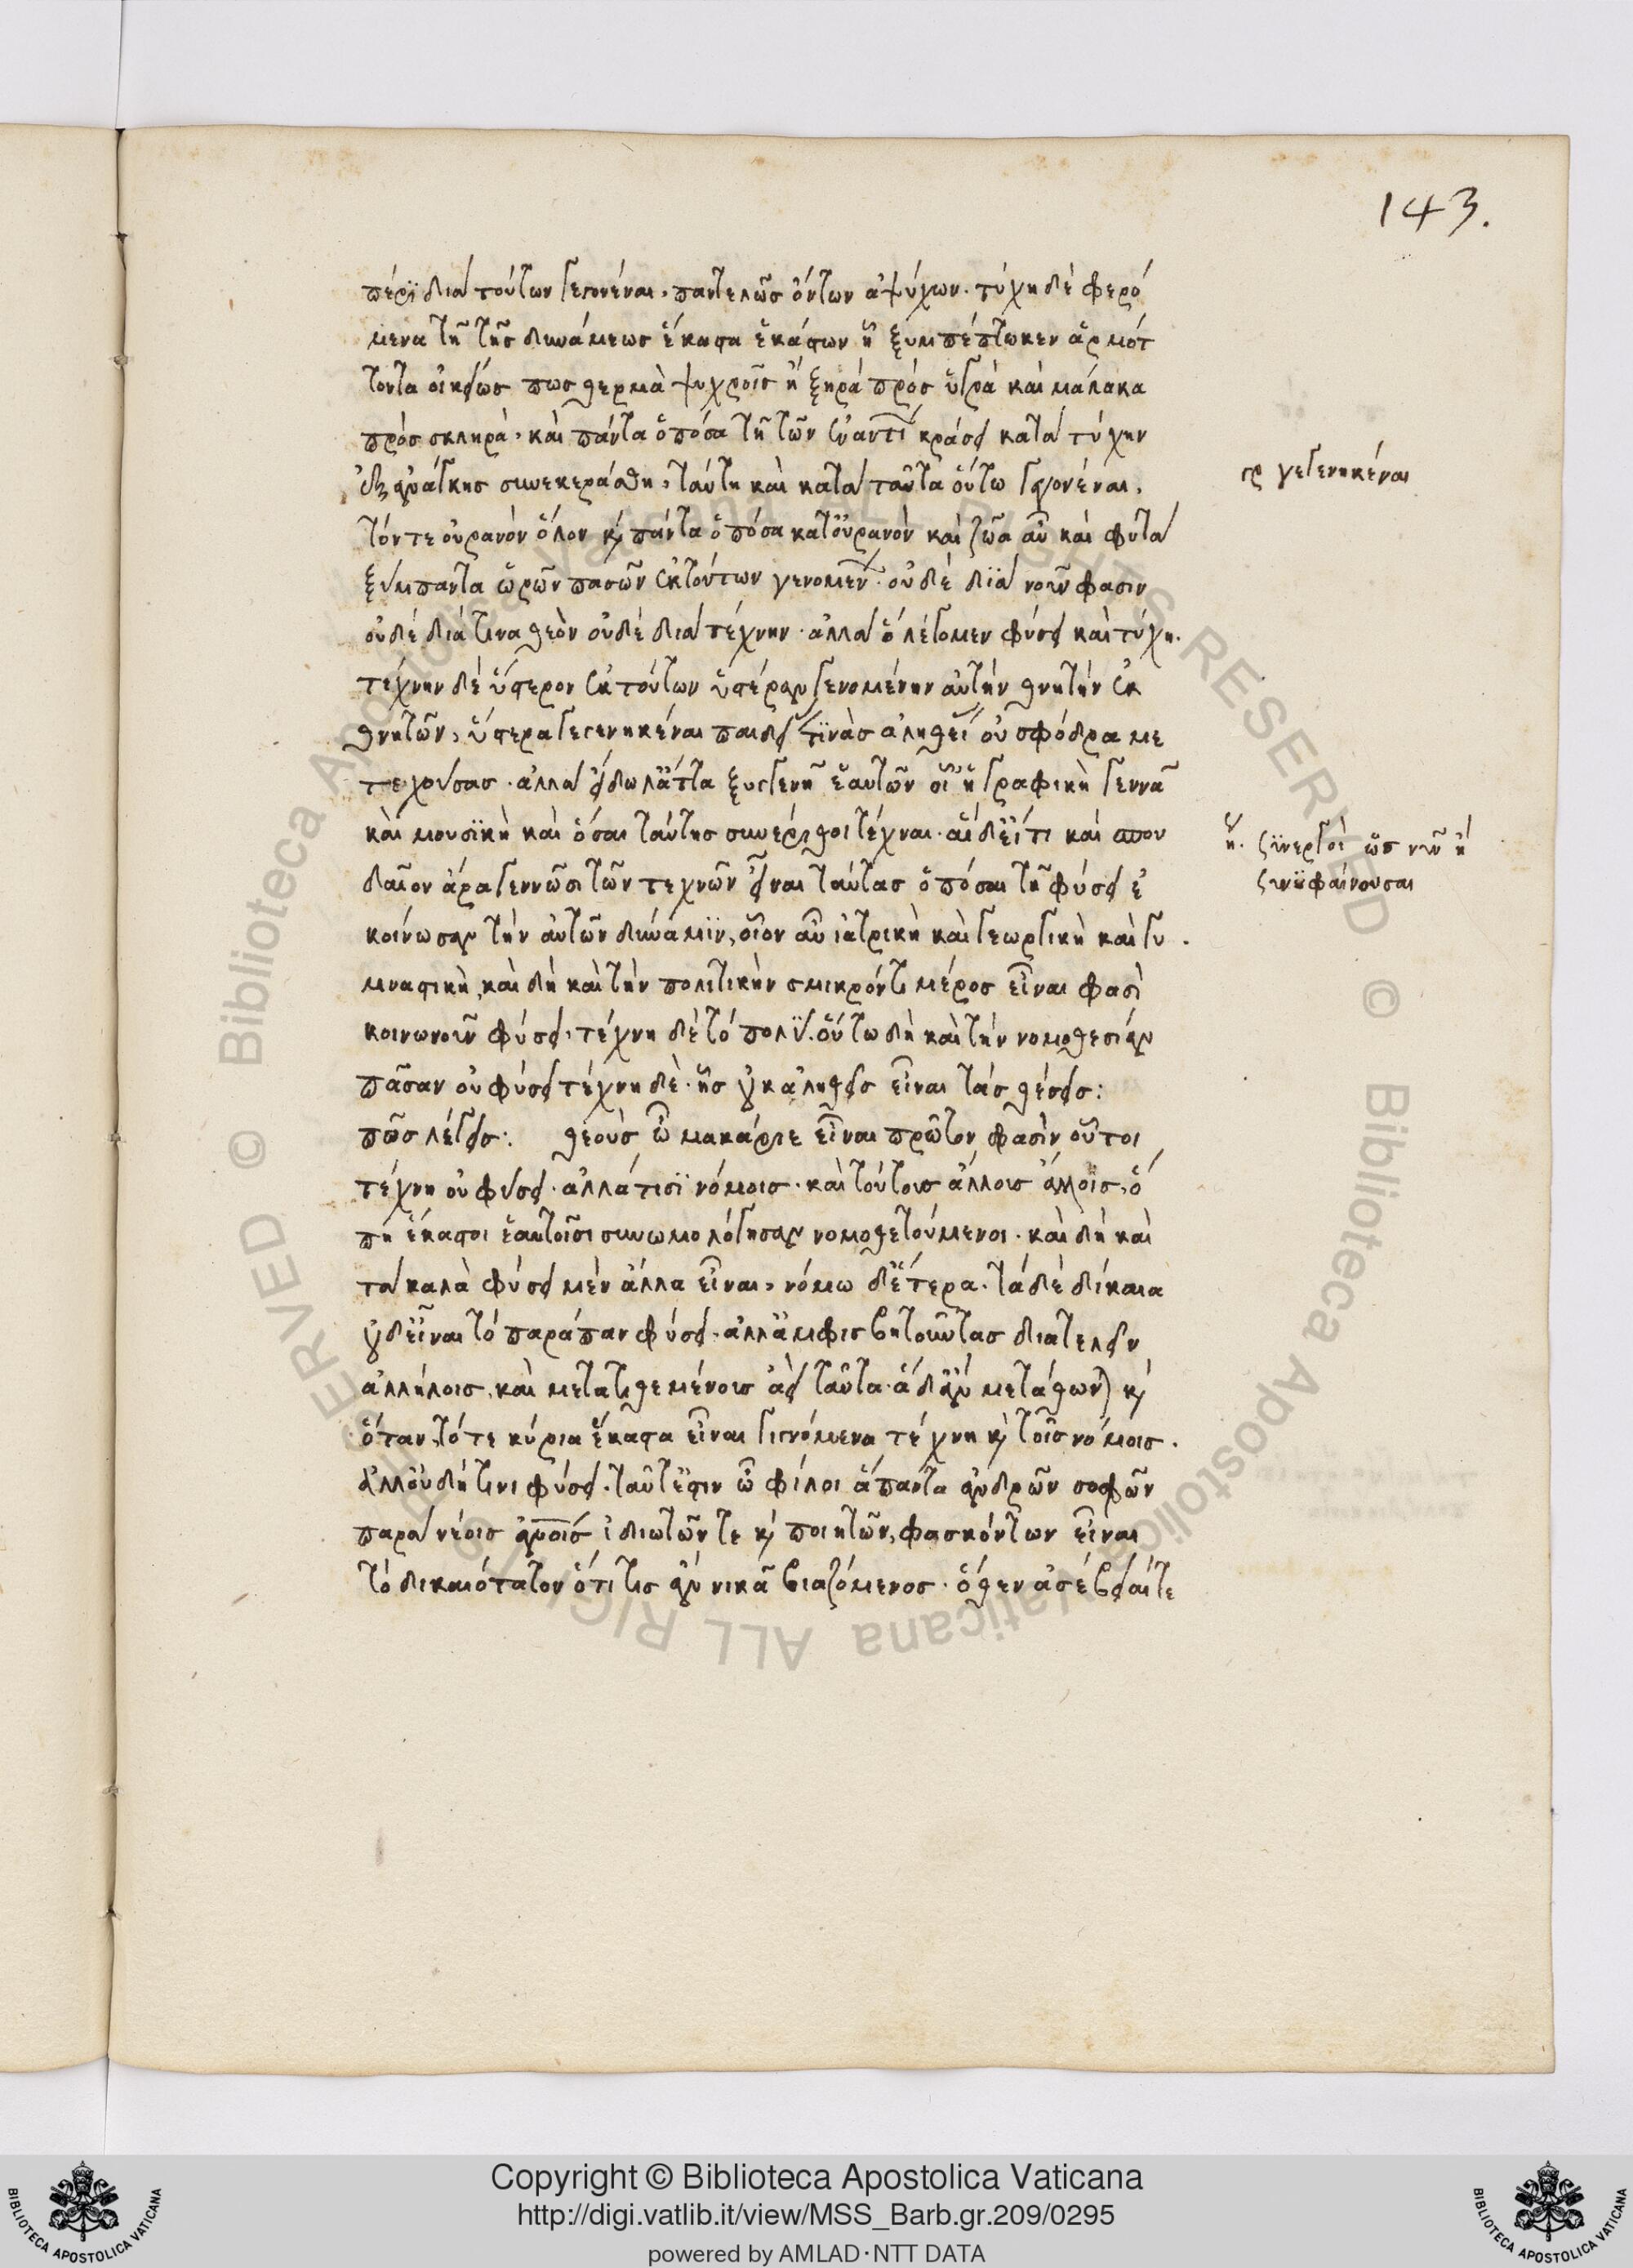 143.
πέρι διὰ τούτων γεγονέναι, παντελῶς ὄντων ἀψύχων. τύχη δὲ φερό
μενα τῆ τῆς δυνάμεως ἕκαστα ἑκάστων ἧ ξυμπέπτωκεν ἁρμότ
τοντα οἰκείως πως θερμὰ ψυχροῖς ἢ ξηρὰ πρὸς ὑγρὰ καὶ μαλακὰ
πρὸς σκληρὰ, καὶ πάντα ὁπόσα τῆ τῶν ἐναντί κράσει κατὰ τύχην
ἐξ ἀνάγκης συνεκεράσθη, ταύτη καὶ κατὰ ταῦτα οὕτω γεγονέναι,
τόν τε οὐρανὸν ὅλον καὶ πάντα ὁπόσα κατ' οὐρανὸν καὶ ζῶα αὖ καὶ φυτὰ
ξύμπαντα ὡρῶν πασῶν ἐκ τούτων γενομένων. οὐδὲ διὰ νοῦν φασιν
οὐδὲ διά τινα θεὸν οὐδὲ διὰ τέχνην. ἀλλὰ ὃ λέγομεν φύσει καὶ τύχη.
τέχνην δὲ ὕστερον ἐκ τούτων ὑστέραν γενομένην αὐτὴν θνητὴν ἐκ
θνητῶν, ὕστερα γεγενηκέναι παιδείας τινὰς ἀληθεί οὐ σφόδρα με
τεχούσας. ἀλλὰ εἴδωλ' ἄττα ξυγγενῆ ἑαυτῶν οἷ' ἡ γραφικὴ γεννᾶ
καὶ μουσικὴ καὶ ὅσαι ταύτης συνέριθοι τέχναι. αἳ δ' εἴ τι καὶ σπου
δαῖον ἄρα γεννῶσι τῶν τεχνῶν εἶναι ταύτας ὁπόσαι τῆ φύσει ἐ
κοίνωσαν τὴν αὐτῶν δύναμιν, οἷον αὖ ἰατρικὴ καὶ γεωργικὴ καὶ γυ
μναστικὴ, καὶ δὴ καὶ τὴν πολιτικὴν σμικρόν τι μέρος εἶναι φασὶ
κοινωνοῦν φύσει, τέχνη δὲ τὸ πολύ. οὕτω δὴ καὶ τὴν νομοθεσίαν
πᾶσαν οὐ φύσει τέχνη δὲ. ἧς οὐκ ἀληθεῖς εἶναι τὰς θέσεις:
πῶς λέγεις: θεοὺς ὦ μακάριε εἶναι πρῶτον φασὶν οὗτοι
τέχνη οὐ φύσει. ἀλλά τισι νόμοις. καὶ τούτους ἄλλους ἄλλοις, ὅ
πη ἕκαστοι ἑαυτοῖσι συνωμολόγησαν νομοθετούμενοι. καὶ δὴ καὶ
τὰ καλὰ φύσει μὲν ἄλλα εἶναι, νόμω δ' ἕτερα. τὰ δὲ δίκαια
οὐδ' εἶναι τὸ παράπαν φύσει. ἀλλ' ἀμφισβητοῦντας διατελεῖν
ἀλλήλοις, καὶ μετατιθεμένους ἀεὶ ταῦτα. ἃ δ' ἂν μετάθωνται καὶ
ὅταν, τότε κύρια ἕκαστα εἶναι γιγνόμενα τέχνη καὶ τοῖς νόμοις.
ἀλλ' οὐ δή τινι φύσει. ταῦτ' ἔστιν ὦ φίλοι ἅπαντα ἀνδρῶν σοφῶν
παρὰ νέοις ἀνοις ἰδιωτῶν τε καὶ ποιητῶν, φασκόντων εἶναι
τὸ δικαιότατον ὅ τι τις ἂν νικᾶ βιαζόμενος. ὅθεν ἀσέβειαί τε
γεγενηκέναι
συνεργοὶ ὡς νῦν ἢ
συνυφαίνουσαι